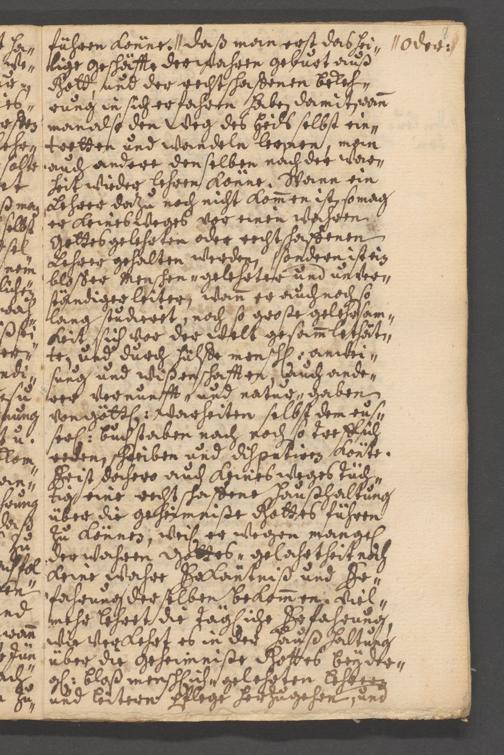 führen könne. || daß man erst das hei- || oder:
lige geschäffte der wahren geburt auß
Gott, und der rechtschaffenen bekeh-
rung in sich erfahren habe, damit, wann
man also den weg des heils selbst ein-
tretten und wandeln lernen, man
auch andere denselben nach der war-
heit wieder lehren könne. Wann ein
Lehrer dazu noch nicht komen ist, so mag
er keines weges vor einen wahren
Gottesgelehrten oder rechtschaffenen
Lehrer gehalten werden, sondern ist ein
bloßer menschen-gelehrter und unver-
ständiger leiter, wann er auch noch so
lang studieret, noch so große gelehrsam-
keit sich vor der welt gesammlet hät-
te, und durch hülffe menschl: anwei-
sung und wißenschafften, auch ande-
rer vernunfft- und natur-gaben
von göttl: warheiten selbst dem äus-
serl: buchstaben nach noch so trefflich
reden, schreiben und disputiren könte.
Er ist dahero auch keines weges tüch-
tig eine rechtschaffene haußhaltung
über die geheimniße Gottes führen
zu können, weil er wegen mangel
der wahren Gottes-gelahrtheit noch
keine wahre Erkäntniß und Er-
fahrung derselben bekommen. Viel-
mehr lehret die tägliche Erfahrung,
wie verkehrt es in der haußhaltung
über die geheimniße Gottes bey der-
gl: bloß menschlich-gelehrten lehrern
und leitern pflege herzugehen, und